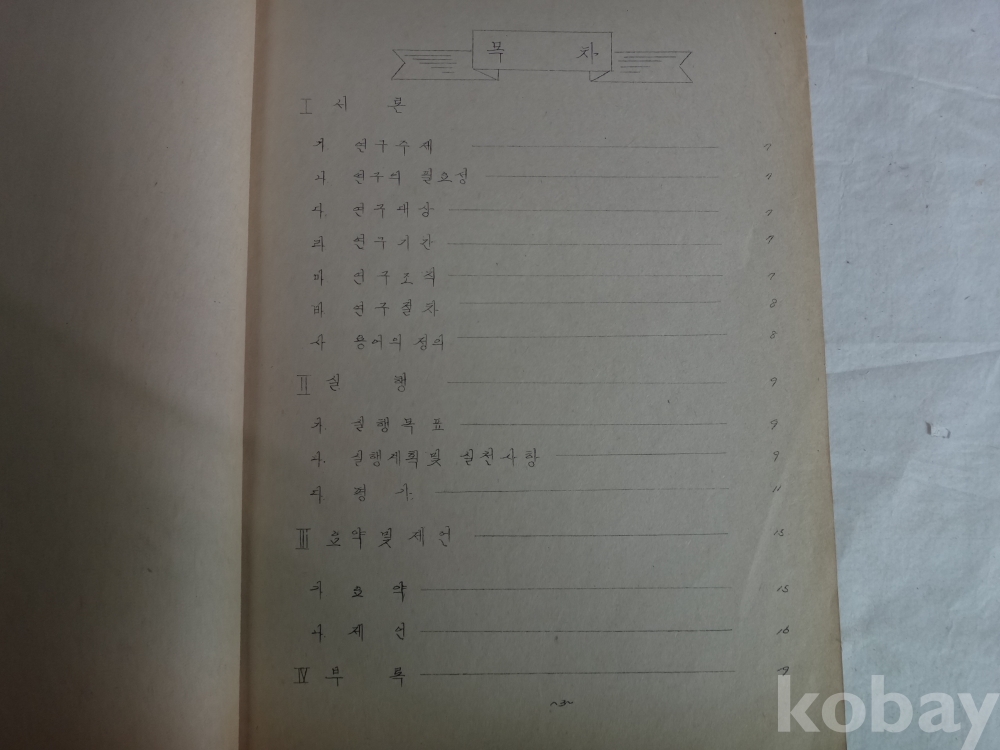 목 차
I 서 론
가. 연구주제 7
나 연구의 필요성 7
다. 연구대상 7
라 연구기간 7
마 연구조직 7
바 연구절차 8
사 용어의 정의 8
II 실 행 9
가. 실행목표 9
나. 실행계획및 실천사항 9
다 평 가. 11
III 요약 및 제언 15
가 요 약 15
나 제 언 16
IV 부 록 19
~3~
kobay